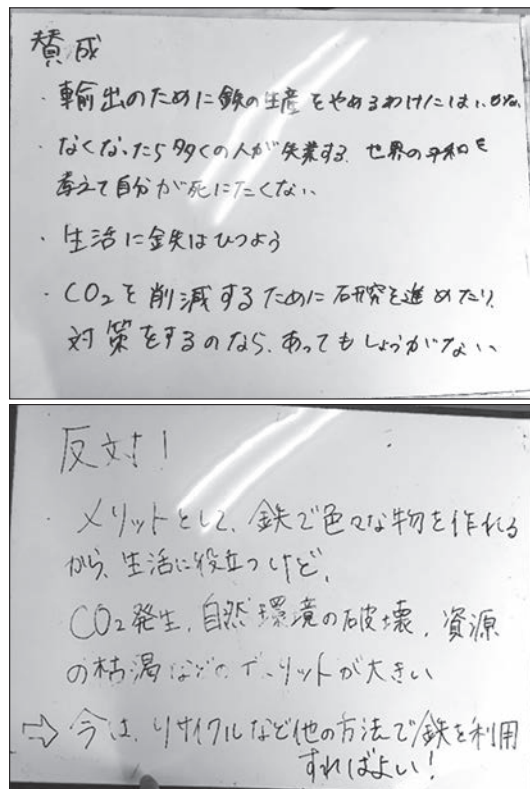 賛成
・輸出のために鉄の生産をやめるわけにはいかない
・なくなったら多くの人が失業する。世界の平和を
考えて自分が死にたくない
・生活に鉄はひつよう
・CO2を削減するために研究を進めたり、
対策をするのなら、あってもしょうがない、
反対!
・メリットとして、鉄で色々な物を作れる
から、生活に役立つけど、
CO2発生、自然環境の破壊、資源
の枯渇などのデメリットが大きい
⇨今は、リサイクルなど他の方法で鉄を利用
すればよい!